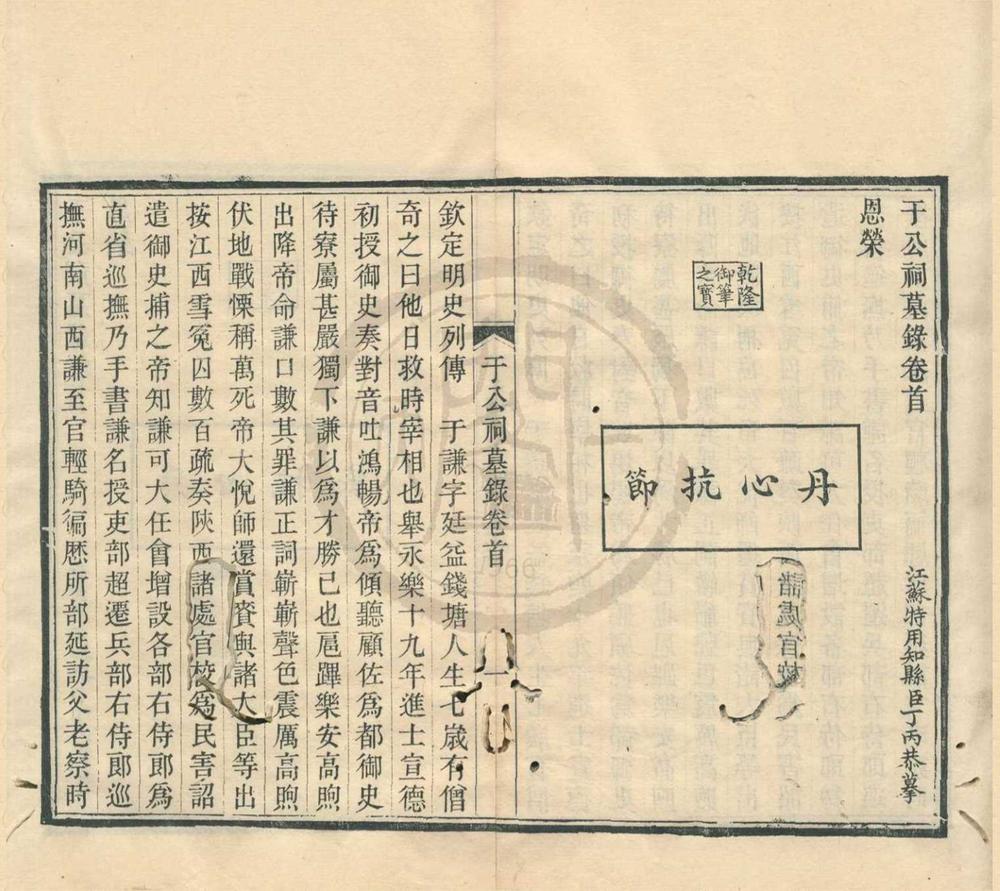 于公祠墓錄卷首
恩榮
江蘇特用知縣臣丁丙恭摹
乾隆
御筆
之寶
丹心抗節
于公祠墓錄卷首
一
欽定明史列傳 于謙字廷益錢塘人生七歲有僧
奇之曰他日救時宰相也舉永樂十九年進士宣德
初授御史奏對音吐鴻暢帝爲傾聽顧佐爲都御史
待寮屬甚嚴獨下謙以爲才勝已也扈蹕樂安高煦
出降帝命謙口數其罪謙正詞嶄嶄聲色震厲高煦
伏地戰慄稱萬死帝大悅師還賞賚與諸大臣等出
按江西雪冤囚數百疏奏陝西諸處官校爲民害詔
遣御史捕之帝知謙可大任會增設各部右侍郎爲
直省巡撫乃手書謙名授吏部超遷兵部右侍郎巡
撫河南山西謙至官輕騎徧厯所部延訪父老察時